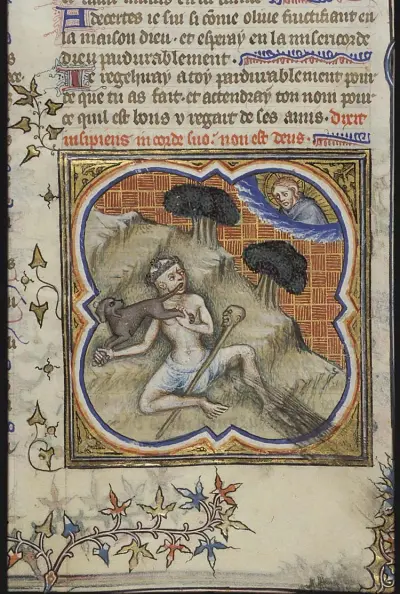 Adecertes ie sui si cōme oliue fructifiant en
la maison dieu · et esperay en la misericorde
dieu pardurablement ·
Ie regehiray a toy pardurablement pour
ce que tu as fait · et attendray ton nom pour
ce quil est bons v regart de ses amis · Dixit
insipiens in corde suo : non est deus ·